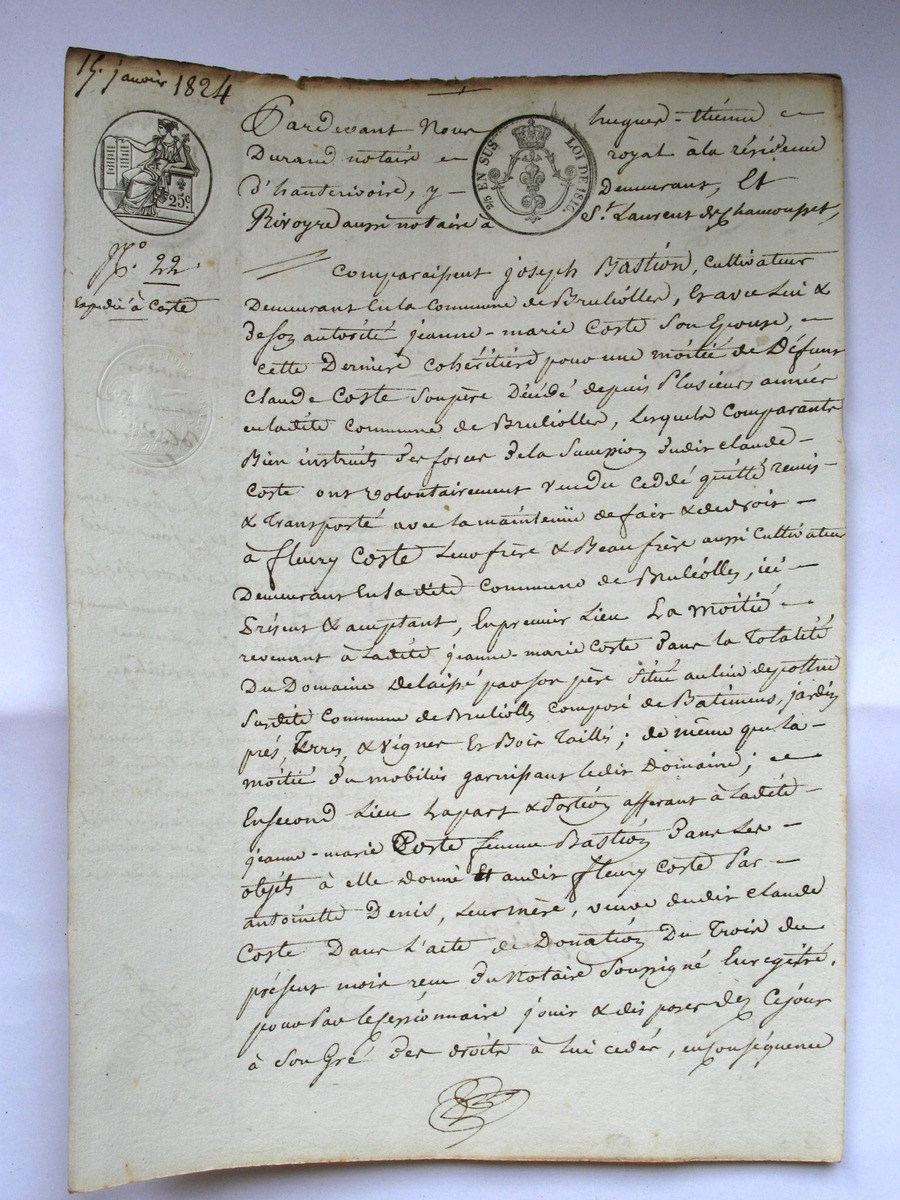 15. janvier 1824
Pardevant Nous hugues-étienne
Durand notaire royal à la résidence
d'hauterivoire, y Demeurant, Et
Rivoyre aussi notaire à St. Laurent de Chamousset,
EN SUS LOI DE 1816.
25c.
No. 22.
Expédié à Coste
Comparaissent joseph Bastion, Cultivateur
Demeurant En la Commune de Brulioller, Et avec Lui &
De son autorité jeanne-marie Coste Son Epouse,
cette Derniere Cohéritière pour une moitié de Défunt
Claude Coste Son père Décédé depuis Plusieurs année
en ladite Commune de Brulioller, Lesquels Comparants
Bien instruits des forces De la Sucession dudit Claude
Coste ont volontairement vendu ceddé quitté remis
& Transporté avec la maintenüe de fait & de droit
à fleury Coste Leur frère & Beaufrère aussi Cultivateur
Demeurant En ladite Commune de Bruliolles, ici
Présent & acceptant, En premier Lieu La moitié
revenant à Ladite jeanne marie Coste Dans la Totalité
Du Domaine Delaissé par son père Situé au lieu de
Susdite Commune de Bruliolles Composé de Batimens, jardin
prés, Terres, & vignes Et Bois Taillis; de même que la
moitié du mobilier garnissant ledit Domaine;
En second Lieu La part & Portion afferant à Ladite
jeanne-marie Coste femme Bastion Dans Les
objets à elle donné Et audit fleury Coste Par
antoinette Denis, Leur mère, veuve dudit Claude
Coste Dans L'acte de Donation Du Trois du
présent mois recu Du Notaire Soussigné Enregitré.
pour Par le Cessionnaire jouir & disposer Dez Cejour
à Son Gré des droits à Lui cedés, en conséquence